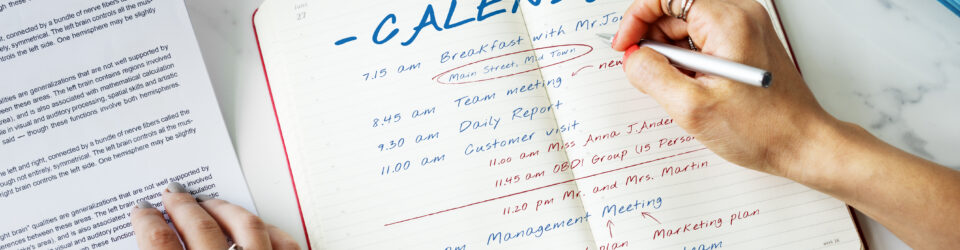 connected by a bundle of nerve fibers called
entirely, symmetrical. The left brain controls all the
controls the left side. One hemisphere may be slightly
qualities are generalizations that are not well supported by
between these areas. The left brain contains regions involved
area), and is also associated with mathematical calculation
in visual and auditory processing, spatial skills and artistic
said — though these functions involve both hemispheres.
the left and right, connected by a bundle of nerve fibers called the
though not entirely, symmetrical. The left brain controls all the mus-
right brain controls the left side. One hemisphere may be slightly
right brain" qualities are generalizations that are not well supported by
differences between these areas. The left brain contains regions involved
area), and is also associated with mathematical calculation
in visual and auditory processing, spatial skills and artistic
said — though these functions involve both
JUNE
27
7.15 am Breakfast with Mr.
Main Street, Mid Town
8.45 am Team meeting
9.30 am Daily Report
11.00 am Customer visit
11.00 am Miss Anna J.
11.45 am OBDI Group (15
11.20 pm Mr. and Mrs. Martin
am Management Meeting
plan Marketing plan
WEEK 26